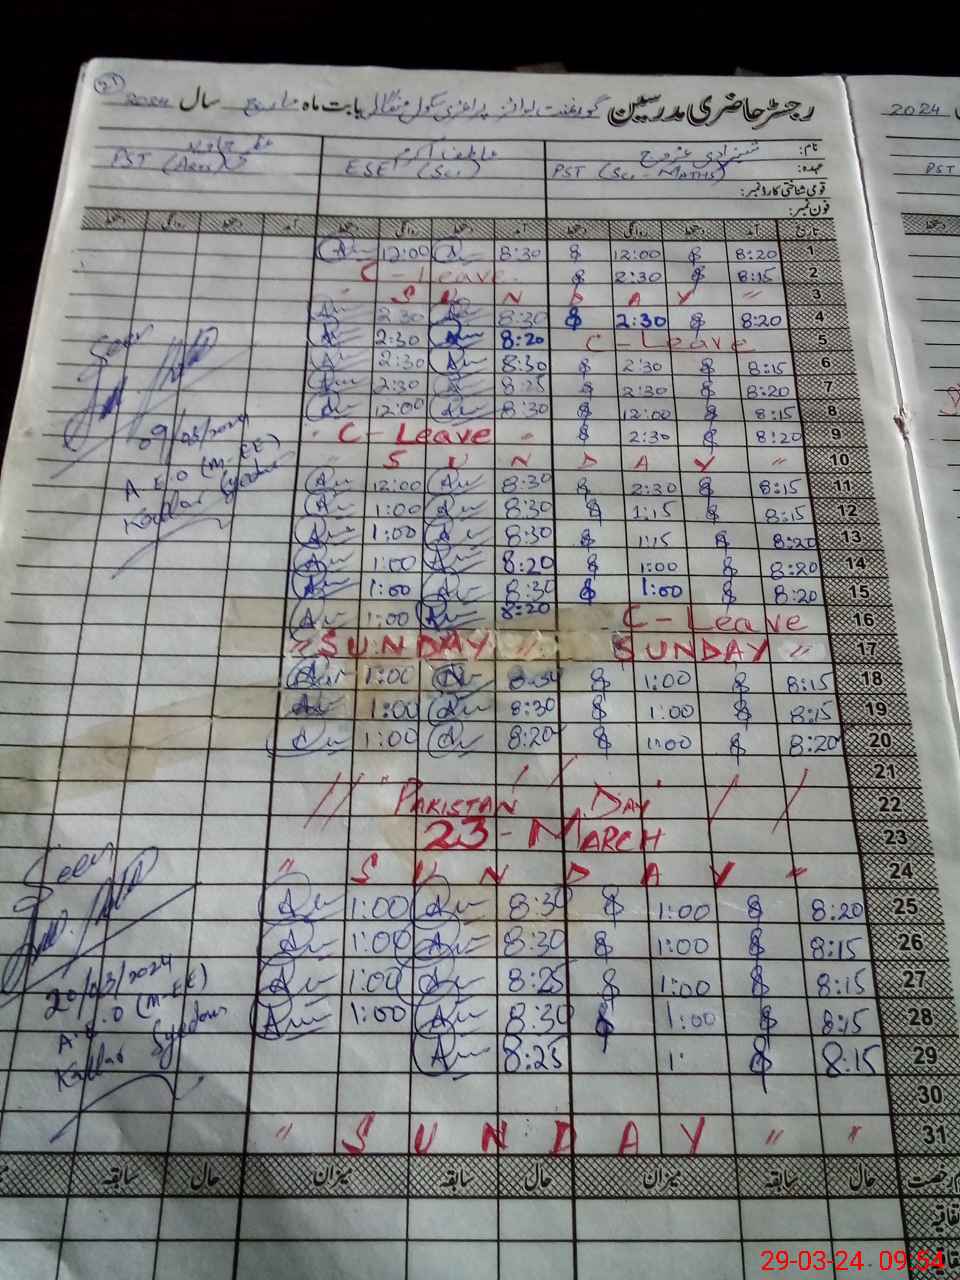 رجسٹر حاضری مدرسین گورنمنٹ بوائز پرائمری سکول منگال بابت ماہ مارچ سال 2024
2024
نام:
عہدہ: PST (Sci - MATHS) ESE (Sci) PST (Arts)
PST
قومی شناختی کارڈ نمبر:
فون نمبر:
تاریخ آمد دستخط روانگی دستخط آمد دستخط روانگی دستخط آمد دستخط روانگی دستخط
1 8:20 12:00 8:30 12:00
2 8:15 2:30 C-Leave
3 " S U N D A Y "
4 8:20 2:30 8:30 2:30
5 C-Leave 8:20 2:30
6 8:15 2:30 8:30 2:30
7 8:20 2:30 8:25 2:30
8 8:15 12:00 8:30 12:00
9 8:20 2:30 C-Leave "
10 " S U N D A Y "
11 8:15 2:30 8:30 12:00
12 8:15 1:15 8:30 1:00
13 8:20 1:15 8:30 1:00
14 8:20 1:00 8:20 1:00
15 8:20 1:00 8:30 1:00
16 C-Leave 8:20 1:00
17 SUNDAY " " SUNDAY "
18 8:15 1:00 8:30 1:00
19 8:15 1:00 8:30 1:00
20 8:20 1:00 8:20 1:00
21
22 PAKISTAN DAY
23 23-MARCH
24 " S U N D A Y "
25 8:20 1:00 8:30 1:00
26 8:15 1:00 8:30 1:00
27 8:15 1:00 8:25 1:00
28 8:15 1:00 8:30 1:00
29 8:15 1: 8:25
30
31 " S U N D A Y " "
Seen
09/03/2024
A.E.O (M-EE)
Kallar Syedan
Seen
20/03/2024
A.E.O (M-EE)
Kallar Syedan
حال سابقہ میزان حال سابقہ میزان حال سابقہ
29-03-24 09:54